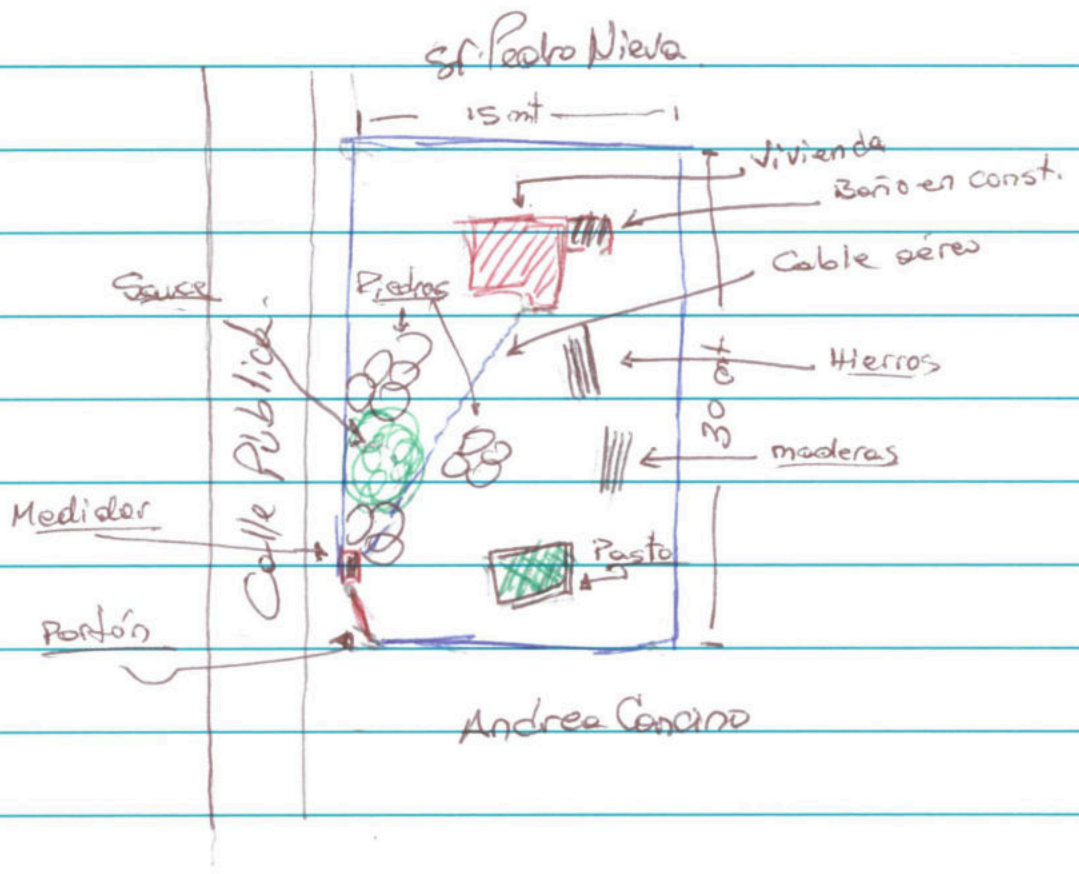 Sr. Pedro Nieva
15 mt
Vivienda
Baño en const.
Cable aéreo
Sauce
Piedras
Hierros
30 mt
maderas
Calle Pública
Medidor
Pasto
Portón
Andrea Cancino